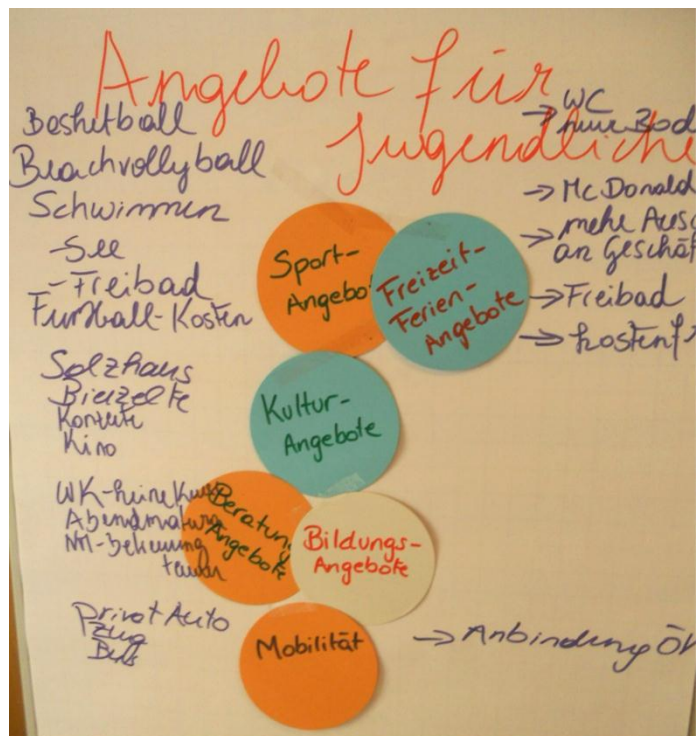 Angebote für
Jugendliche
Basketball
Beachvollyball
Schwimmen
- See
- Freibad
Fußball-Kosten
Salzhaus
Bierzelte
Konzerte
Kino
WK-keine Kurs
Abendmatura
NM-betreuung
teuer
Privat Auto
Zug
Bus
Sport-
Angebo
Freizeit-
Ferien-
Angebote
Kultur-
Angebote
Beratung
Angebote
Bildungs-
Angebote
Mobilität
→ WC
→ McDonald
→ mehr Aus
an Geschäf
→ Freibad
→ kostenf
→ Anbindung Ö